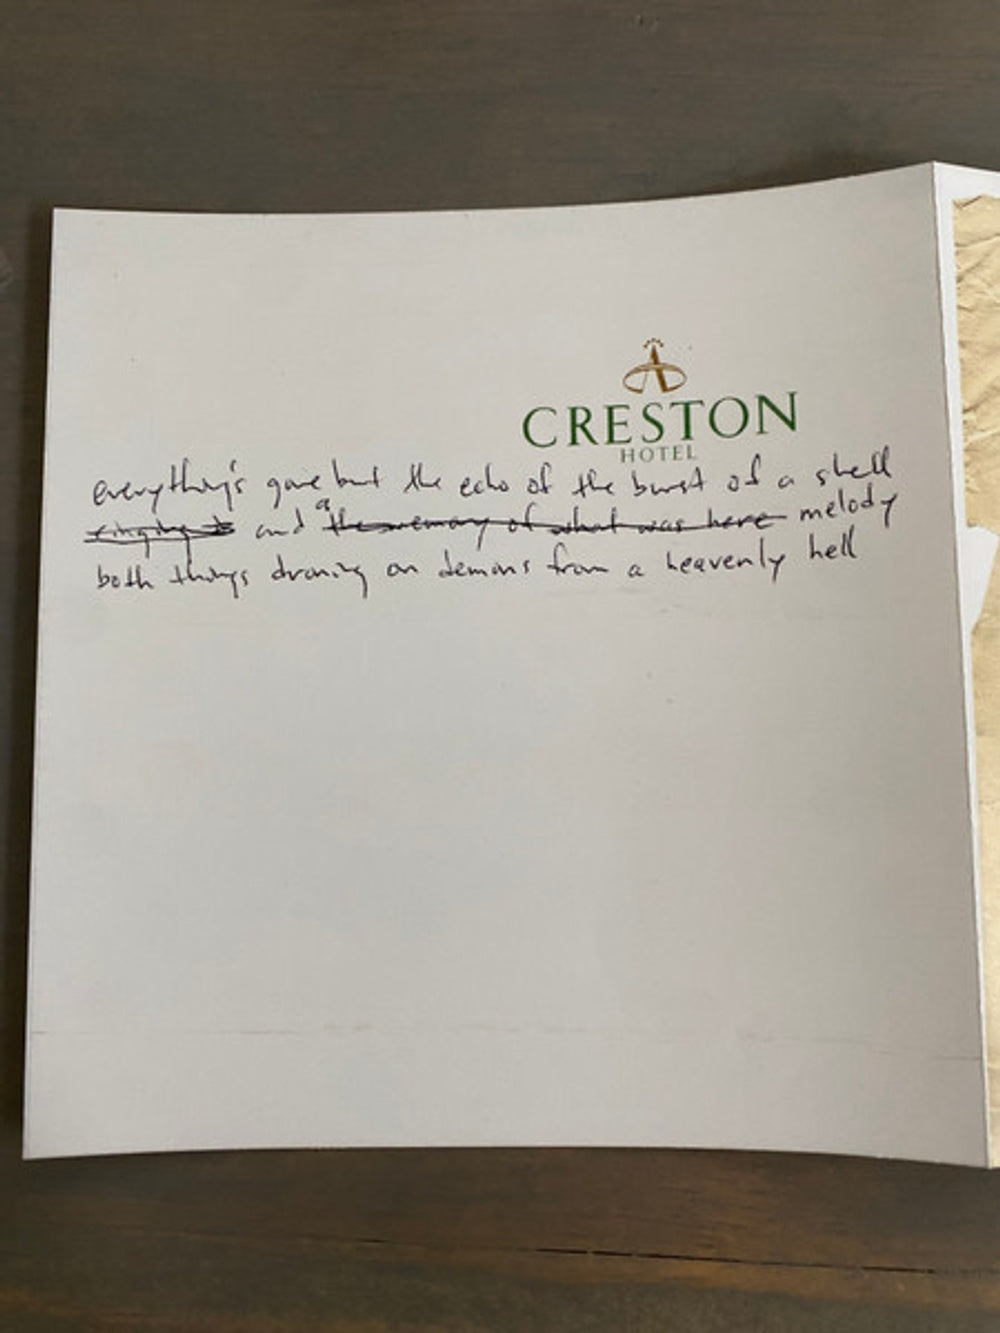 CRESTON
HOTEL
everything's gone but the echo of the burst of a shell
ringing and a the memory of what was here melody
both things droning on demons from a heavenly hell